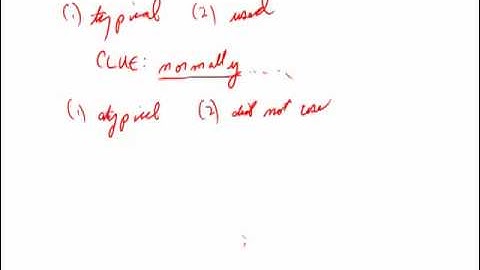 (1) typical (2) used
CLUE: normally.....
(1) atypical (2) did not use